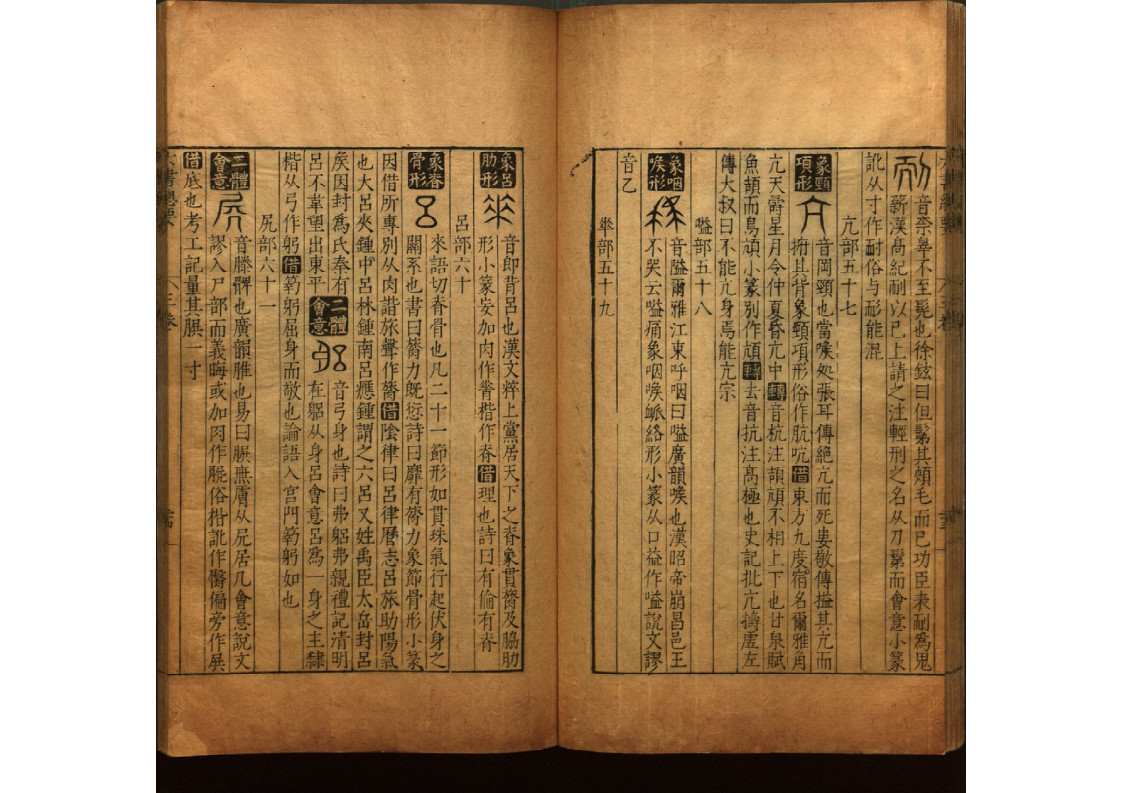 音奈舉不至髡也徐鉉曰但鬀其頰毛而已功臣表耐爲鬼
薪漢高紀耐以已上請之注輕刑之名从刀鬀而會意小篆
訛从寸作耐俗与形能混
亢部五十七
象頸項形 音岡頸也當喉処張耳傳絶亢而死婁敬傳搤其亢而
拊其背象頸項形俗作肮吭借東方九度宿名爾雅角
亢天壽星月令仲夏昏亢中轉音杭注頡頏不相上下也甘泉賦
魚頡而鳥頏小篆別作頏轉去音抗注高極也史記批亢擣虛左
傳大叔曰不能亢身焉能亢宗
嗌部五十八
象咽喉形 音隘爾雅江東呼咽曰嗌廣韻喉也漢昭帝崩昌邑王
不哭云嗌痛象咽喉脈絡形小篆从口益作嗌說文謬
音乙
部五十九
象呂肋形 音即背呂也漢文粹上黨居天下之脊象貫膂及脇肋
形小篆安加肉作脊楷作脊借理也詩曰有倫有脊
呂部六十
象脊骨形 呂 來語切脊骨也凡二十一節形如貫珠氣行起伏身之
關系也書曰膂力旣愆詩曰靡有膂力象節骨形小篆
因借所專別从肉諧旅聲作膂借陰律曰呂律曆志呂旅助陽氣
也大呂夾鍾中呂林鍾南呂應鍾謂之六呂又姓禹臣太岳封呂
矦因封爲氏奉有
呂不韋望出東平 二體會意 躳 音弓身也詩曰弗躳弗親禮記清明
在躳从身呂會意呂爲一身之主隸
楷从弓作躬借䇹躬屈身而敬也論語入宮門䇹躬如也
𡱒部六十一
二體會意 音臀髀也廣韻脽也易曰臋無膚从尻居几會意說文
謬入尸部而義晦或加肉作臋俗楷訛作臀偏旁作㞟
借底也考工記量其臋一寸